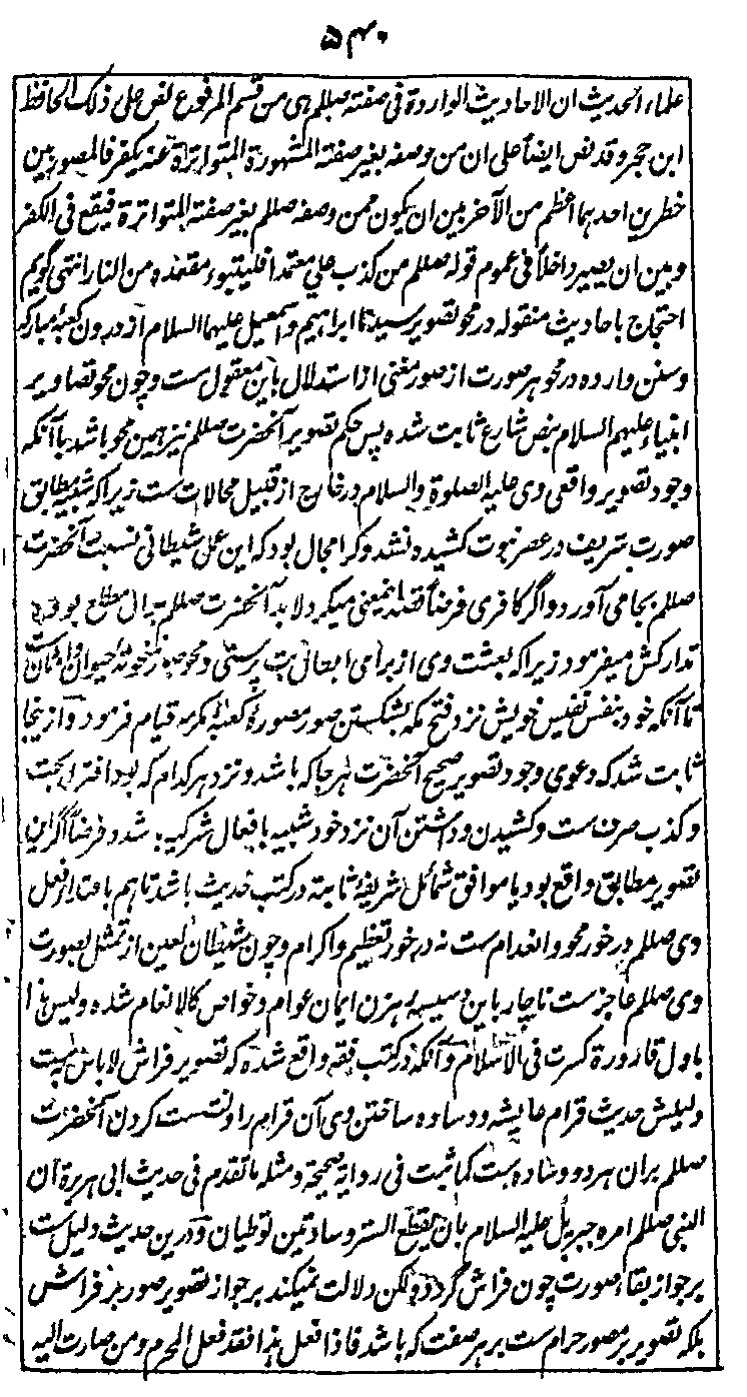 ۵۴۰
علماء الحدیث ان الاحادیث الواردة فی صفته صلم هی من قسم المرفوع نص علی ذلک الحافظ
ابن حجر و قد نص ایضاً علی ان من وصفه بغیر صفته المشهورة المتواترة عنه یکفر فالمصور بین
خطرین احدهما اعظم من الآخر بین ان یکون ممن وصفه صلم بغیر صفته المتواترة فیقع فی الکفر
و بین ان یصیر داخلاً فی عموم قوله صلم من کذب علی معتمدا فلیتبوء مقعده من النار انتهی گویم
احتجاج باحادیث منقوله در محو تصویر سیدنا ابراهیم و اسمعیل علیهما السلام از درون کعبهٔ مبارکه
و سنن وارده در محو هر صورت از صور مغنی از استدلال باین معقول ست و چون محو تصاویر
انبیاء علیهم السلام بنص شارع ثابت شده پس حکم تصویر آنحضرت صلم نیز همین محو باشد با آنکه
وجود تصویر واقعی وی علیه الصلوة والسلام در خارج از قبیل محالات ست زیرا که شبیه مطابق
صورت شریف در عصر نبوت کشیده نشد و کرا مجال بود که این عمل شیطانی نسبت بآنحضرت
صلم بجا می آورد و اگر کافری فرضاً قصد اینمعنی میکرد لابد آنحضرت صلم بران مطلع بوده
تدارکش میفرمود زیرا که بعثت وی از برای ابطال بت پرستی و محو صور حیوان و انسان ست
تا آنکه خود بنفس نفیس خویش نزد فتح مکه بشکستن صور مصورهٔ کعبهٔ مکرمه قیام فرمود و از ینجا
ثابت شد که دعوی وجود تصویر صحیح آنحضرت هر جا که باشد و نزد هر کدام که بود افتراء بحت
و کذب صرف ست و کشیدن و داشتن آن نزد خود شبیه بافعال شرکیه باشد و فرضاً اگر این
تصویر مطابق واقع بود یا موافق شمائل شریفهٔ ثابته در کتب حدیث باشد تا هم باعتبار فعل
وی صلم در خور محو و انعدام ست نه در خور تعظیم و اکرام و چون شیطان لعین از تمثل بصورت
وی صلم عاجز ست ناچار باین دسیسه رهزن ایمان عوام و خواص کالانعام شده ولیس هذا
باول قارورة کسرت فی الاسلام و آنکه در کتب فقه واقع شده که تصویر فراش لا باس به ست
دلیلش حدیث قرام عایشه و دو ساده ساختن وی آن قرام را و نشست کردن آنحضرت
صلم بران هر دو وساده ست کما ثبت فی روایة صحیحة و مثله ما تقدم فی حدیث ابی هریرة ان
النبی صلم امره جبریل علیه السلام بان یقطع الستر وسادتین توطیان و درین حدیث دلیل ست
بر جواز بقاء صورت چون فراش گردد و لکن دلالت نمیکند بر جواز تصویر صور بر فراش
بلکه تصویر بر مصور حرام ست بر هر صفت که باشد فاذا فعل هذا فقد فعل المحرم و من صارت الیه